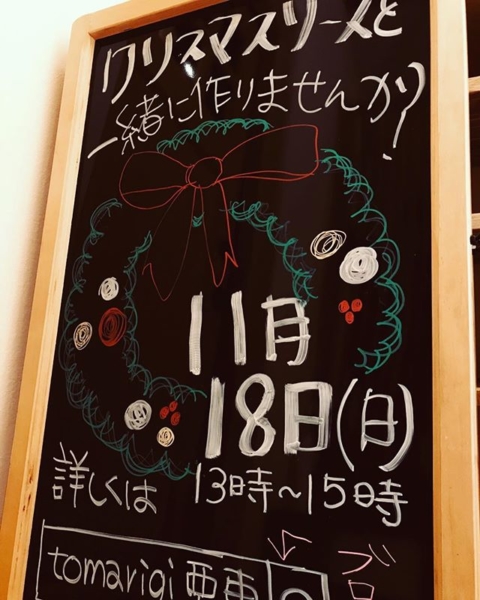 クリスマスリースと
一緒に作りませんか?
11月
18日(日)
詳しくは
13時~15時
tomarigi 亜東
ブロ